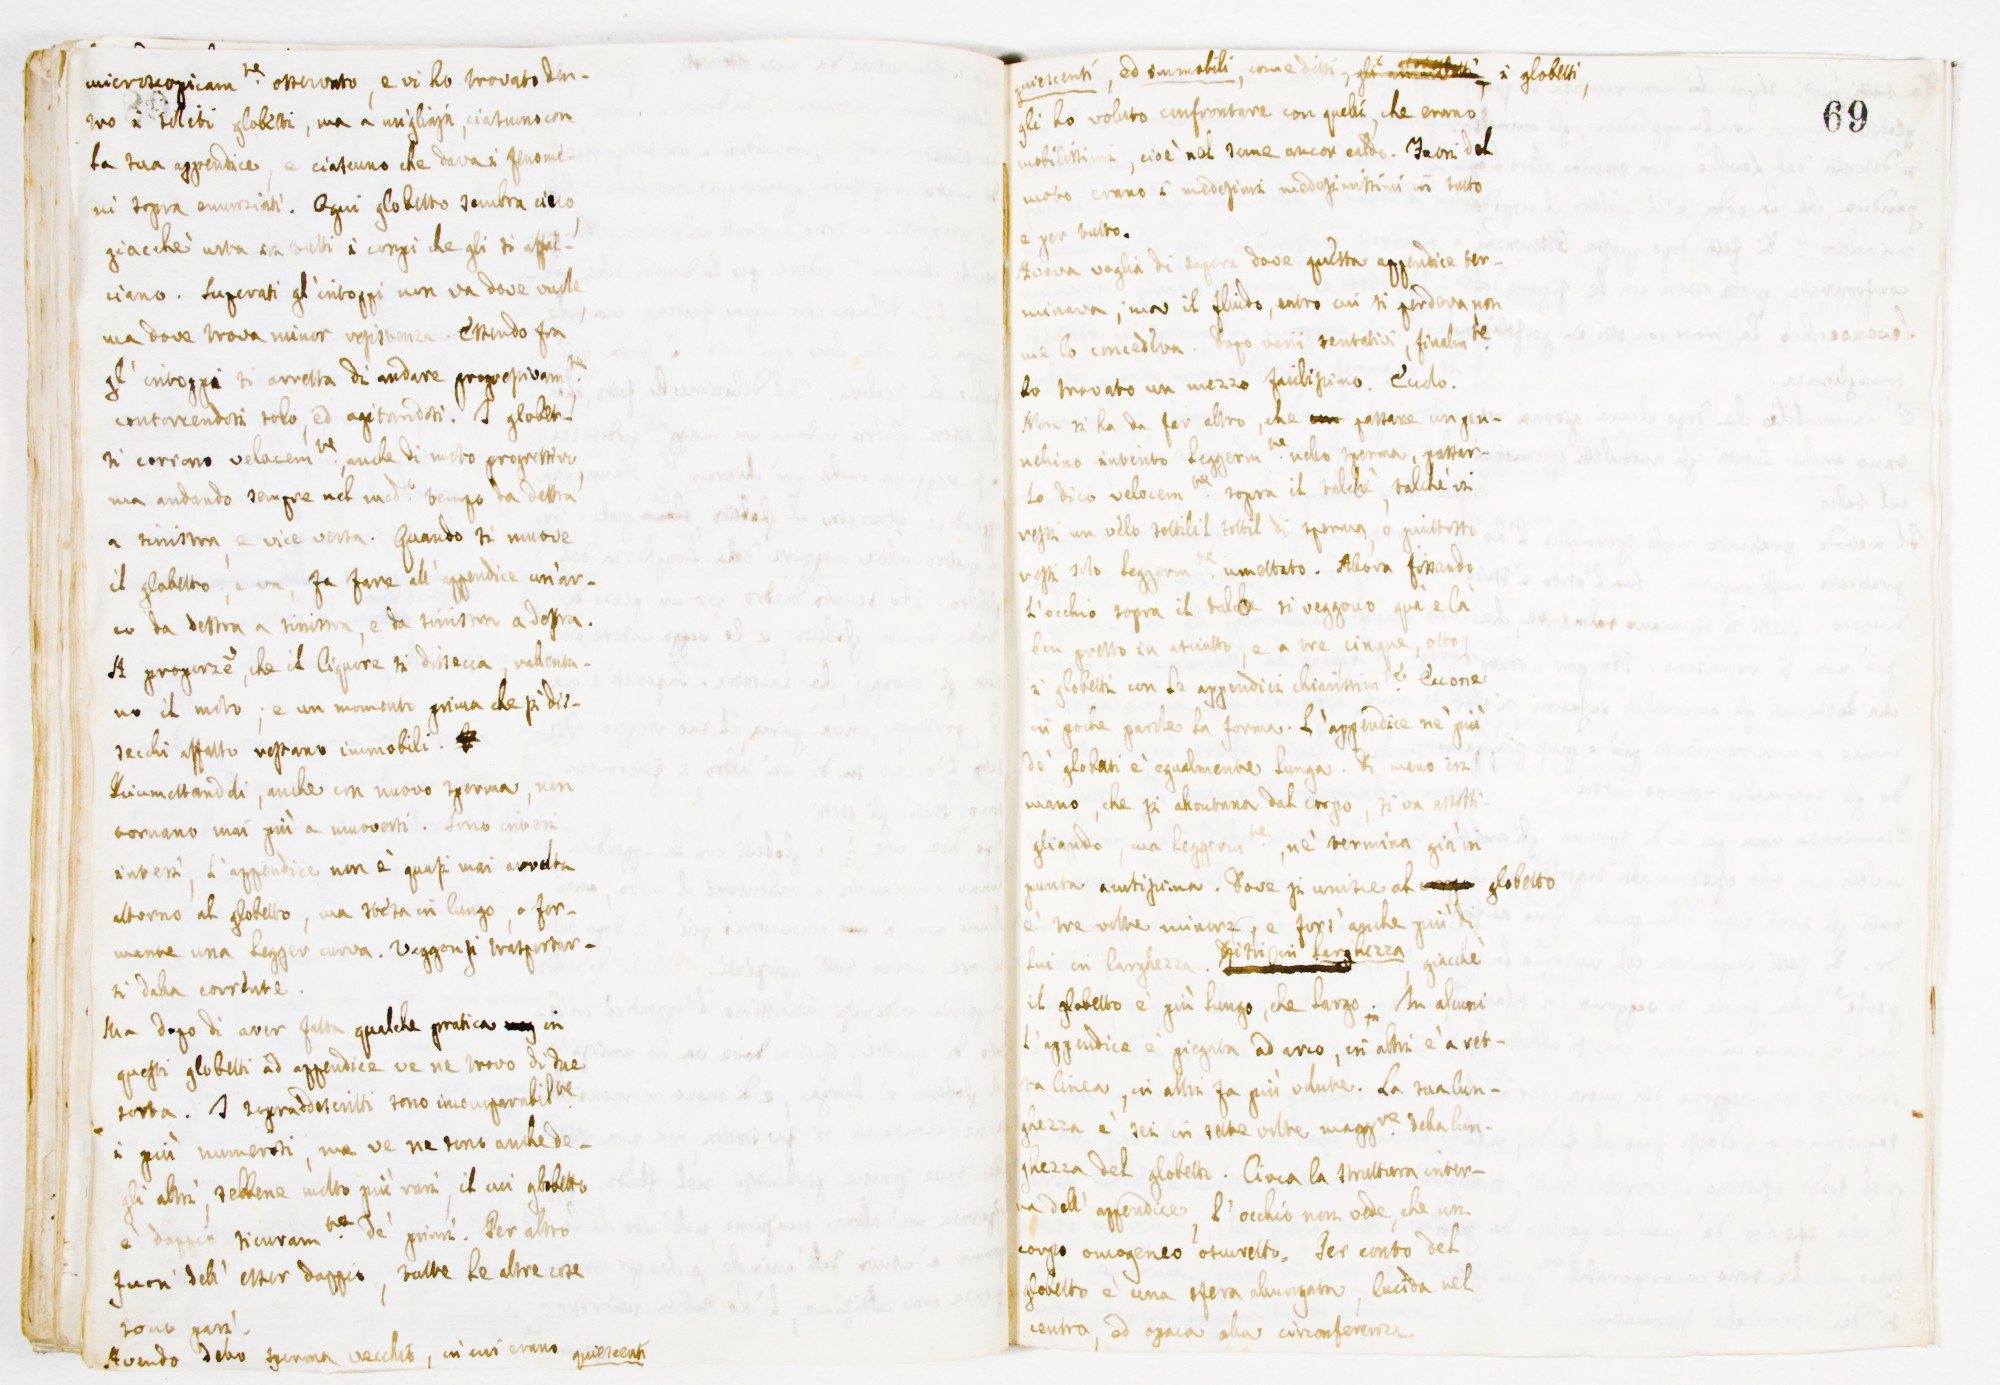 microscopicam.te osservato, e vi ho trovato den-
tro i soliti globetti, ma a migliaja, ciascuno con
la sua appendice, e ciascuno che dava i fenome-
ni sopra enunziati. Ogni globetto sembra cieco,
giacchè urta in tutti i corpi che gli si affac-
ciano. Superati gl'intoppi non va dove vuole
ma dove trova minor resistenza. Essendo fra
gl'intoppi si arresta di andare progressivam.te
contorcendosi solo, ed agitandosi. I globet-
ti corrono velocem.te, anche di moto progressivo,
ma andando sempre nel med.o tempo da destra
a sinistra, e vice versa. Quando si muove
il globetto, e va, fa fare all'appendice un'ar-
co da destra a sinistra, e da sinistra a destra.
A proporz.e, che il liquore si dissecca, rallenta-
no il moto; e un momento prima che si dis-
secchi affatto restano immobili.
Inumettandoli, anche con nuovo sperma, non
tornano mai più a muoversi. Sono interi
interi, l'appendice non è quasi mai avvolta
attorno al globetto, ma stesa in lungo, o for-
mante una legger curva. Veggonsi trasportar-
si dalla corrente.
Ma dopo di aver fatta qualche pratica in
questi globetti ad appendice ve ne trovo di due
sorta. I sopraddescritti sono incomparabil.te
i più numerosi, ma ve ne sono anche de-
gli altri, sebbene molto più rari, il cui globetto
è doppio sicuram.te de' primi. Per altro
fuori dell'esser doppio, tutte le altre cose
sono pari.
Avendo dello sperma vecchio, in cui erano quiescenti
quiescenti, ed immobili, come dissi, i globetti,
69
gli ho voluto confrontare con quelli, che erano
mobilissimi, cioè nel seme ancor caldo. Fuori del
moto erano i medesimi medesimissimi in tutto
e per tutto.
Aveva voglia di sapere dove questa appendice ter-
minava, ma il fluido, entro cui si perdeva, non
me lo concedeva. Dopo varii tentativi, finalm.te
ho trovato un mezzo facilissimo. Eccolo.
Non si ha da far altro, che passare un pen-
nellino intinto leggerm.te nello sperma, passar-
lo dico velocem.te sopra il talche, talchè vi
resti un velo sottilil sottil di sperma, o piuttosto
resti solo leggerm.te umettato. Allora fissando
l'occhio sopra il talche si veggono quà e là
ben presto in asciutto, e a tre cinque, otto
i globetti con le appendici chiarissim.te Eccone
in poche parole la forma. L'appendice ne' più
de' globetti è egualmente lunga. Di mano in
mano, che si allontana dal corpo, si va assotti-
gliando, ma leggerm.te, nè termina già in
punta acutissima. Dove si unisce al globetto
è tre volte minore, e fors'anche più di
lui in larghezza. Dissi in larghezza, giacchè
il globetto è più lungo, che largo. In alcuni
l'appendice è piegata ad arco, in altri è a ret-
ta linea, in altri fa più volute. La sua lun-
ghezza è sei in sette volte magg.re della lun-
ghezza del globetto. Circa la struttura inter-
na dell'appendice, l'occhio non vede, che un
corpo omogeneo oscuretto. Per conto del
globetto è una sfera allungata, lucida nel
centro, ed opaca alla circonferenza.